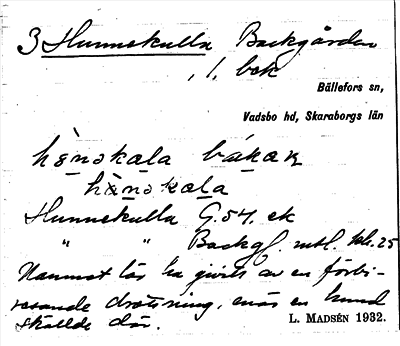 3 Hunnekulla Backgården
, 1, bck
Bällefors sn,
Vadsbo hd, Skaraborgs län
hɵnəkala bákaɴ
hɵnəkala
Hunnekulla G. 54. ek
" " Backg. mtl. 25
Namnet lär ha givits av en förbi-
resande drottning, enär en hund
skällde där.
L. MADSÉN 1932.